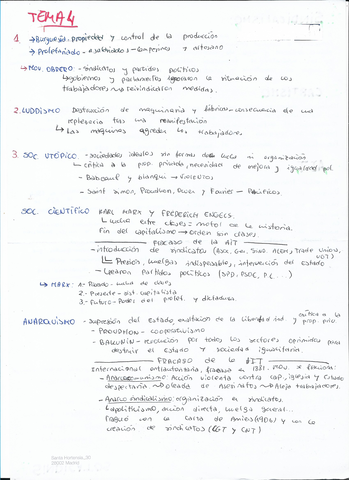 TEMA 4
1. → Burguesía - propiedad y control de la producción
→ Proletariado - asalariados - campesinos y artesano
→ MOV. OBRERO - sindicatos y partidos políticos
↳ gobiernos y parlamentos la situación de los
trabajadores → reivindicaron medidas.
2. LUDDISMO Destrucción de maquinaria y fábricas - consecuencia de una
tras una manifestación
↳ Las máquinas a los trabajadores.
3. SOC. UTÓPICO - sociedades ideales sin lucha ni organización
↳ crítica a la prop. privada, necesidad de mejora y igualdad
- Babeuf y Blanqui → violentos
- Saint Simon, Proudhon, Owen y Fourier - Pacíficos.
SOC. CIENTÍFICO KARL MARX Y FREDERICH ENGELS.
↳ lucha entre clases = motor de la historia.
fin del capitalismo → orden sin clases.
FRACASO DE LA AIT
- introducción de sindicatos (Trade Unions, UGT)
↳ Presión, huelgas indispensables, intervención del estado
- Crearon partidos políticos (SPD, PSOE, )
↳ MARX: 1- Pasado - lucha de clases
2- Presente - dict. capitalista
3- Futuro - Poder del prolet. y dictadura.
ANARQUISMO - supresión del estado, exaltación de la libertad ind. crítica a la prop. priv
- PROUDHON - cooperativismo
- BAKUNIN - revolución por todos los sectores oprimidos para
destruir el estado y sociedad igualitaria.
FRACASO DE LA AIT
Internacional antiautoritaria, fracasa en 1881, mov. se fraciona:
- Anarcocomunismo: Acción violenta contra cap, iglesia y Estado
despertaría, oleada de asesinatos → Aleja trabajadores.
- Anarco sindicalismo: organización en sindicatos.
↳ apoliticismo, acción directa, huelga general...
con la Carta de Amiens (1906) y con la
creación de sindicatos (CGT y CNT)